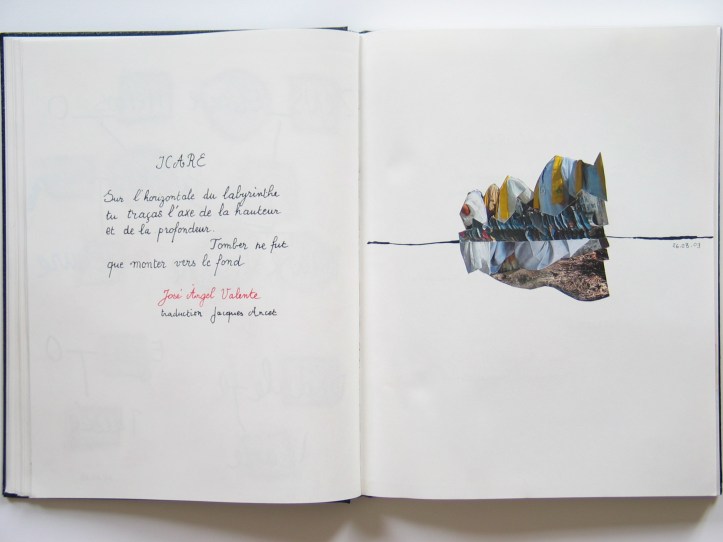 ICARE
Sur l'horizontale du labyrinthe
tu traças l'axe de la hauteur
et de la profondeur.
Tomber ne fut
que monter vers le fond
José Ángel Valente
traduction Jacques Ancet
16.03.09